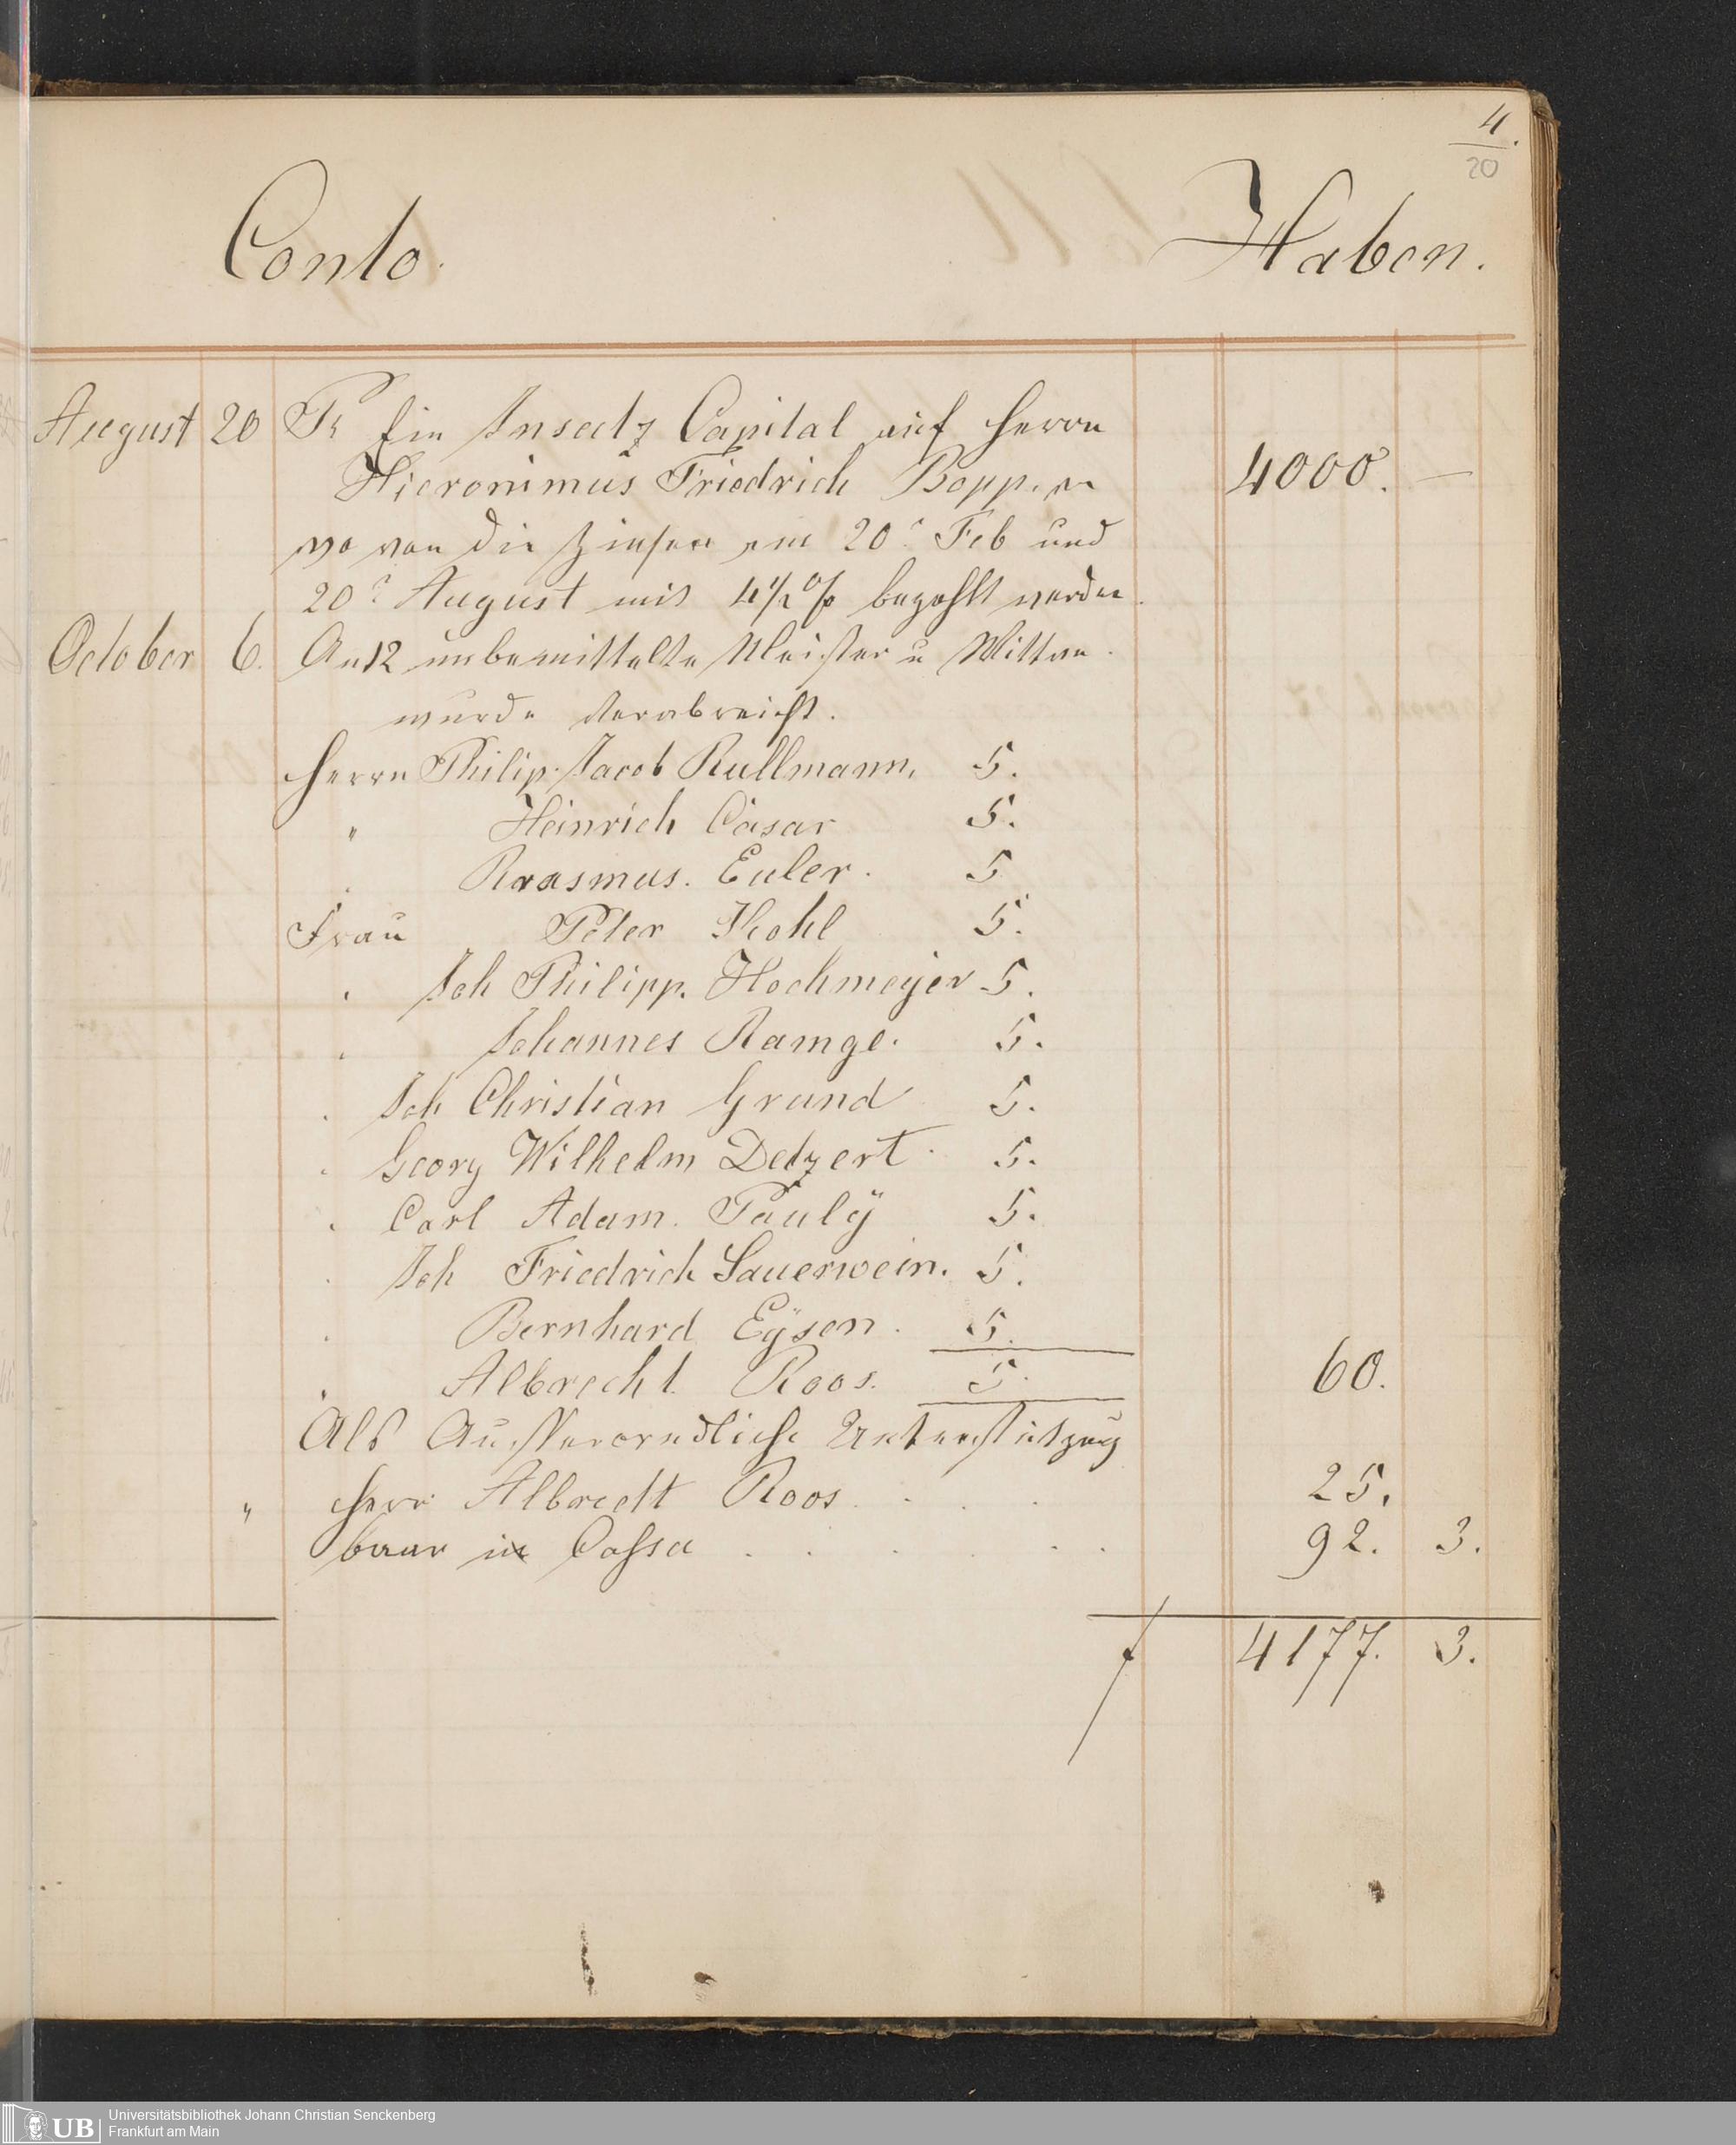 4.
20
Conto. Haben.
August 20 Pr Ein Insatz Capital auf Herrn
Hieronimus Friedrich Bopp. 4000. —
wo von die Zinsen am 20t Feb und
20t August mit 4½% bezahlt werden.
October 6. An 12 unbemittelte Meister u Wittwe.
wurde verabreicht.
Herrn Philip Jacob Rullmann. 5.
" Heinrich Cäsar 5.
Erasmus. Euler. 5
Frau Peter Kohl 5.
Joh Philipp. Hochmeyer 5.
Johannes Ramge. 5.
Joh Christian Grund 5.
Georg Wilhelm Detzert. 5.
Carl Adam. Paulÿ 5.
Joh Friedrich Sauerwein. 5.
Bernhard Eÿsen. 5.
Albrecht Roos. 5. 60.
Als Ausserorndliche Unterstützung
" Herr Albrecht Roos . . . . 25.
baar in Cassa . . . . . . 92. 3.
f 4177. 3.
UB Universitätsbibliothek Johann Christian Senckenberg
Frankfurt am Main